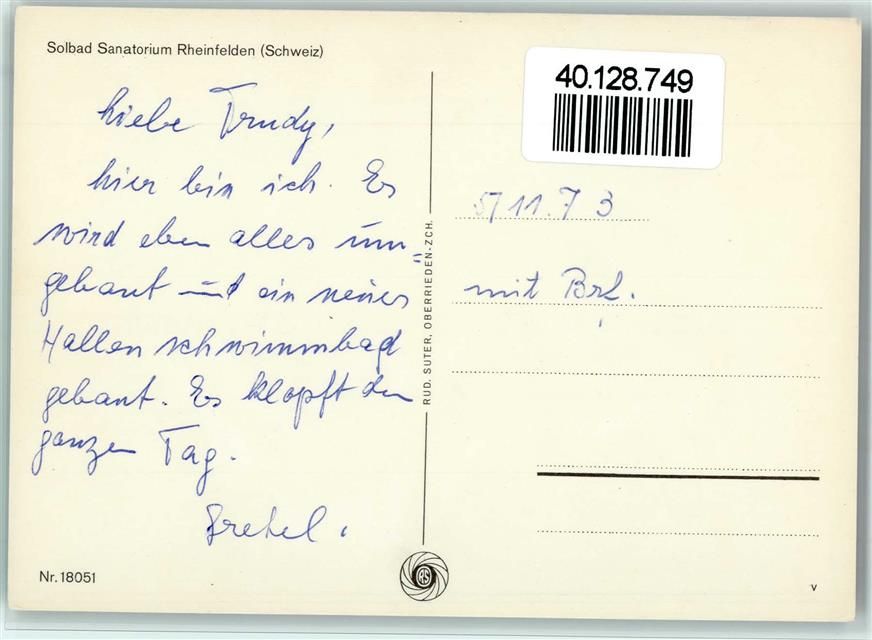 Solbad Sanatorium Rheinfelden (Schweiz)
Liebe Trudy,
hier bin ich. Es
wird eben alles um=
gebaut und ein neues
Hallenschwimmbad
gebaut. Es klopft den
ganzen Tag.
Gretel.
Nr. 18051
RUD. SUTER, OBERRIEDEN-ZCH.
RS
40.128.749
5/11.73
mit Brf.
v